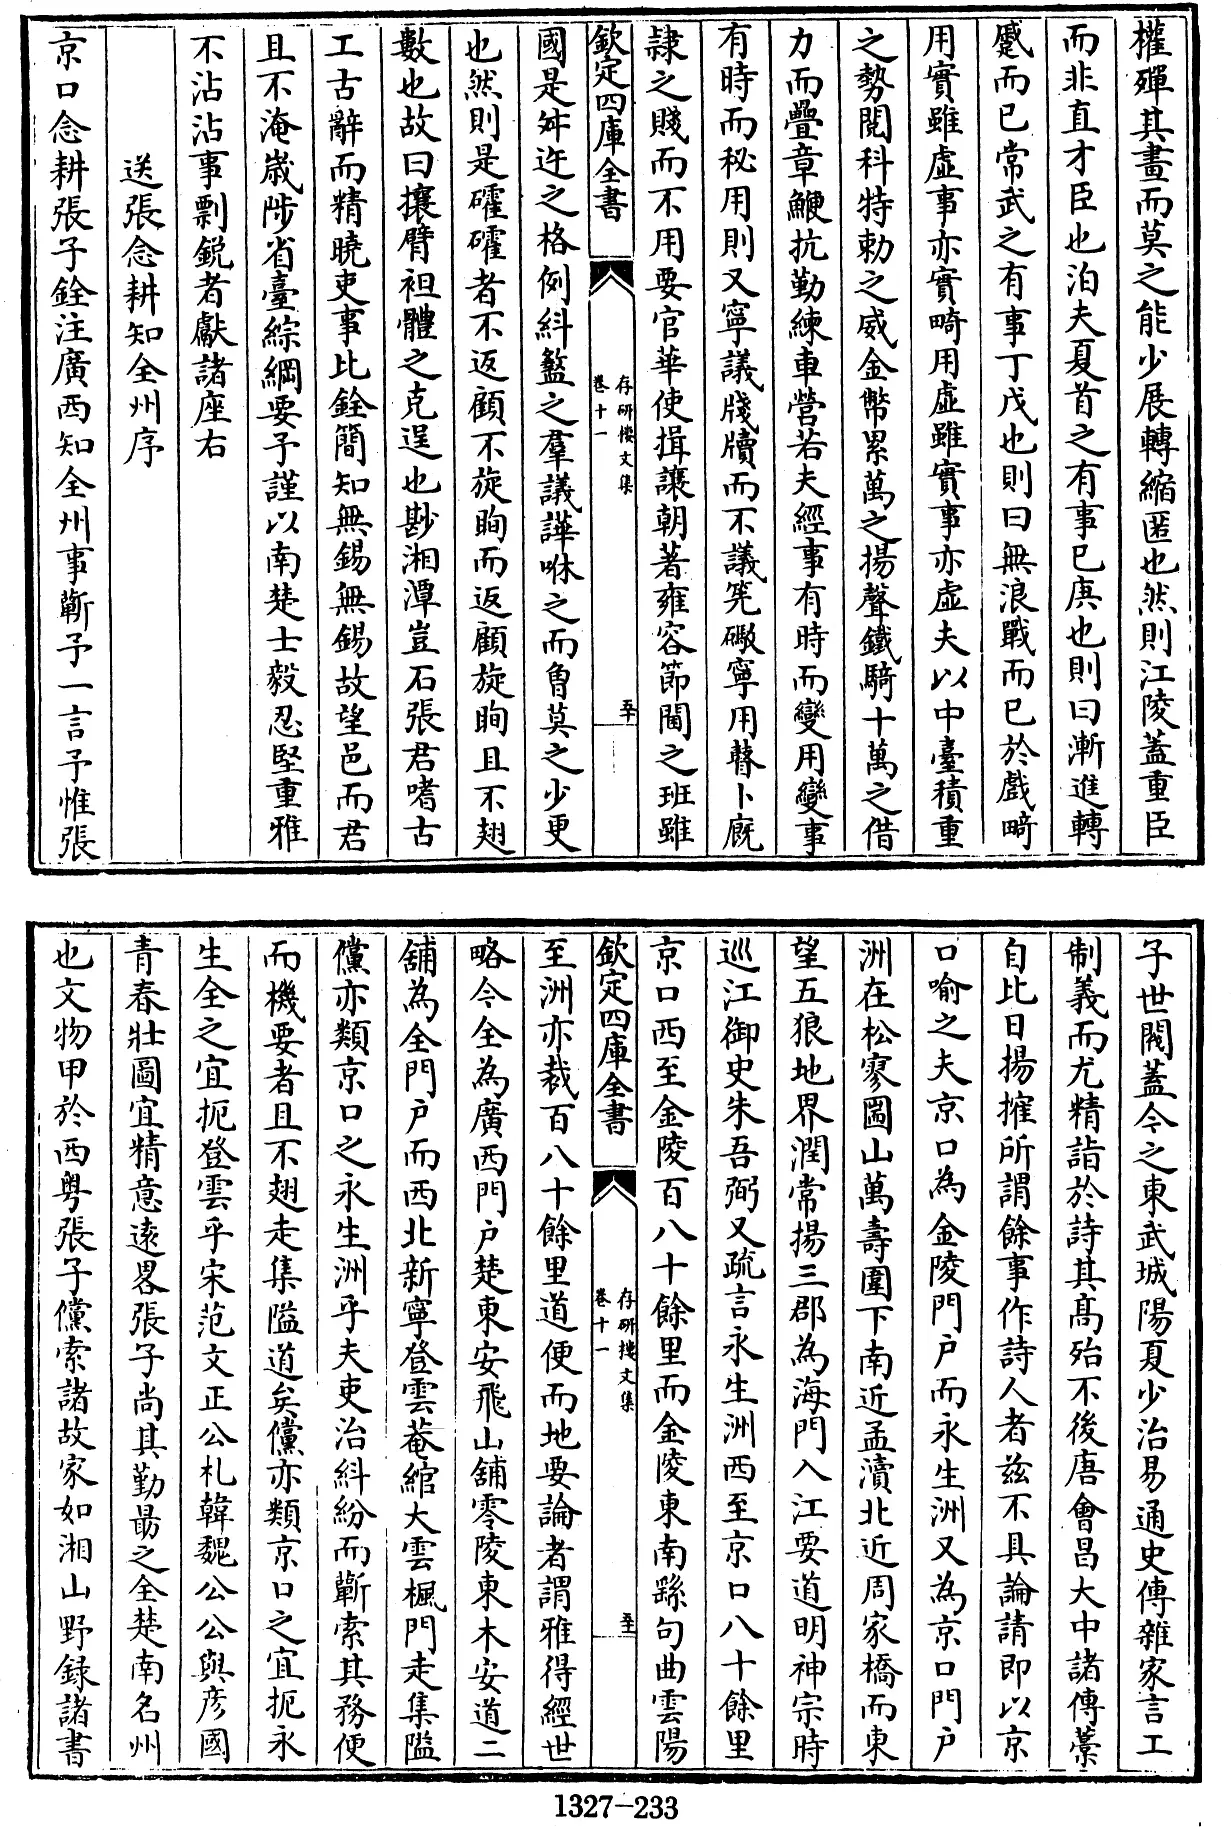 權殫其畫而莫之能少展轉縮匿也然則江陵蓋重臣
而非直才臣也洎夫夏首之有事巳庚也則曰漸進轉
蹙而已常武之有事丁戊也則曰無浪戰而已於戲畸
用實雖虛事亦實畸用虛雖實事亦虛夫以中臺積重
之勢閱科特勅之威金幣累萬之揚聲鐵騎十萬之借
力而疊章鯁抗勤練車營若夫經事有時而變用變事
有時而秘用則又寧議牋牘而不議筅礮寧用瞽卜廐
隷之賤而不用要官華使揖讓朝著雍容節閫之班雖
欽定四庫全書
存研樓文集
卷十一
五十
國是舛迕之格例糾盭之羣議譁咻之而曾莫之少更
也然則是確確者不返顧不旋眴而返顧旋眴且不翅
數也故曰攘臂袒體之克逞也尠湘潭豈石張君嗜古
工古辭而精曉吏事比銓簡知無錫無錫故望邑而君
且不淹歲陟省臺綜綱要予謹以南楚士毅忍堅重雅
不沾沾事剽鋭者獻諸座右
送張念耕知全州序
京口念耕張子銓注廣西知全州事蘄予一言予惟張
子世閥蓋今之東武城陽夏少治易通史傳雜家言工
制義而尤精詣於詩其髙殆不後唐會昌大中諸傳藁
自比日揚搉所謂餘事作詩人者兹不具論請即以京
口喻之夫京口為金陵門户而永生洲又為京口門户
洲在松寥圌山萬壽圍下南近孟瀆北近周家橋而東
望五狼地界潤常揚三郡為海門入江要道明神宗時
巡江御史朱吾弼又疏言永生洲西至京口八十餘里
京口西至金陵百八十餘里而金陵東南繇句曲雲陽
欽定四庫全書
存研樓文集
卷十一
至洲亦裁百八十餘里道便而地要論者謂雅得經世
略今全為廣西門户楚東安飛山舖零陵東木安道二
舖為全門户而西北新寧登雲菴綰大雲楓門走集隘
儻亦類京口之永生洲乎夫吏治糾紛而蘄索其務便
而機要者且不翅走集隘道矣儻亦類京口之宜扼永
生全之宜扼登雲乎宋范文正公札韓魏公公與彦國
青春壯圖宜精意逺畧張子尚其勤勗之全楚南名州
也文物甲於西粤張子儻索諸故家如湘山野録諸書
1327-233